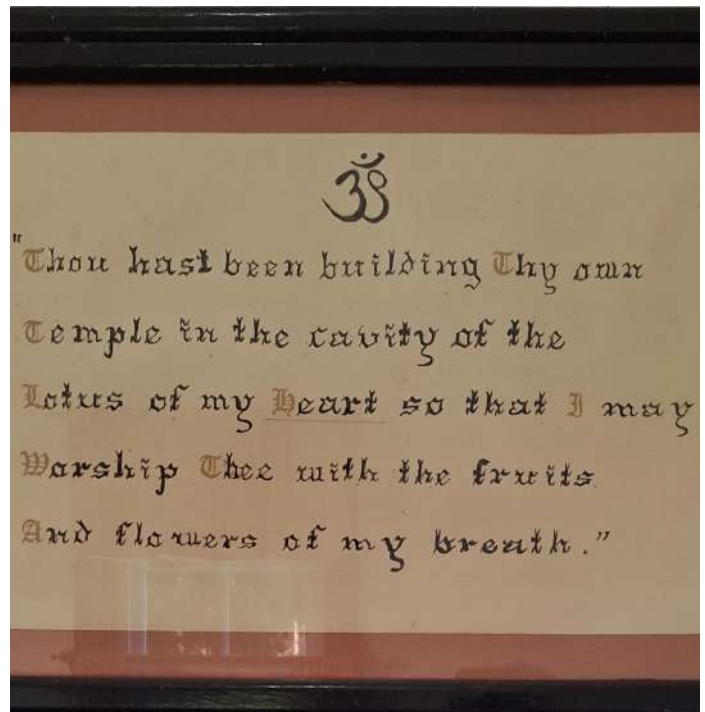 ॐ
"Thou hast been building Thy own
Temple in the cavity of the
Lotus of my Heart so that I may
Worship Thee with the fruits
And flowers of my breath."